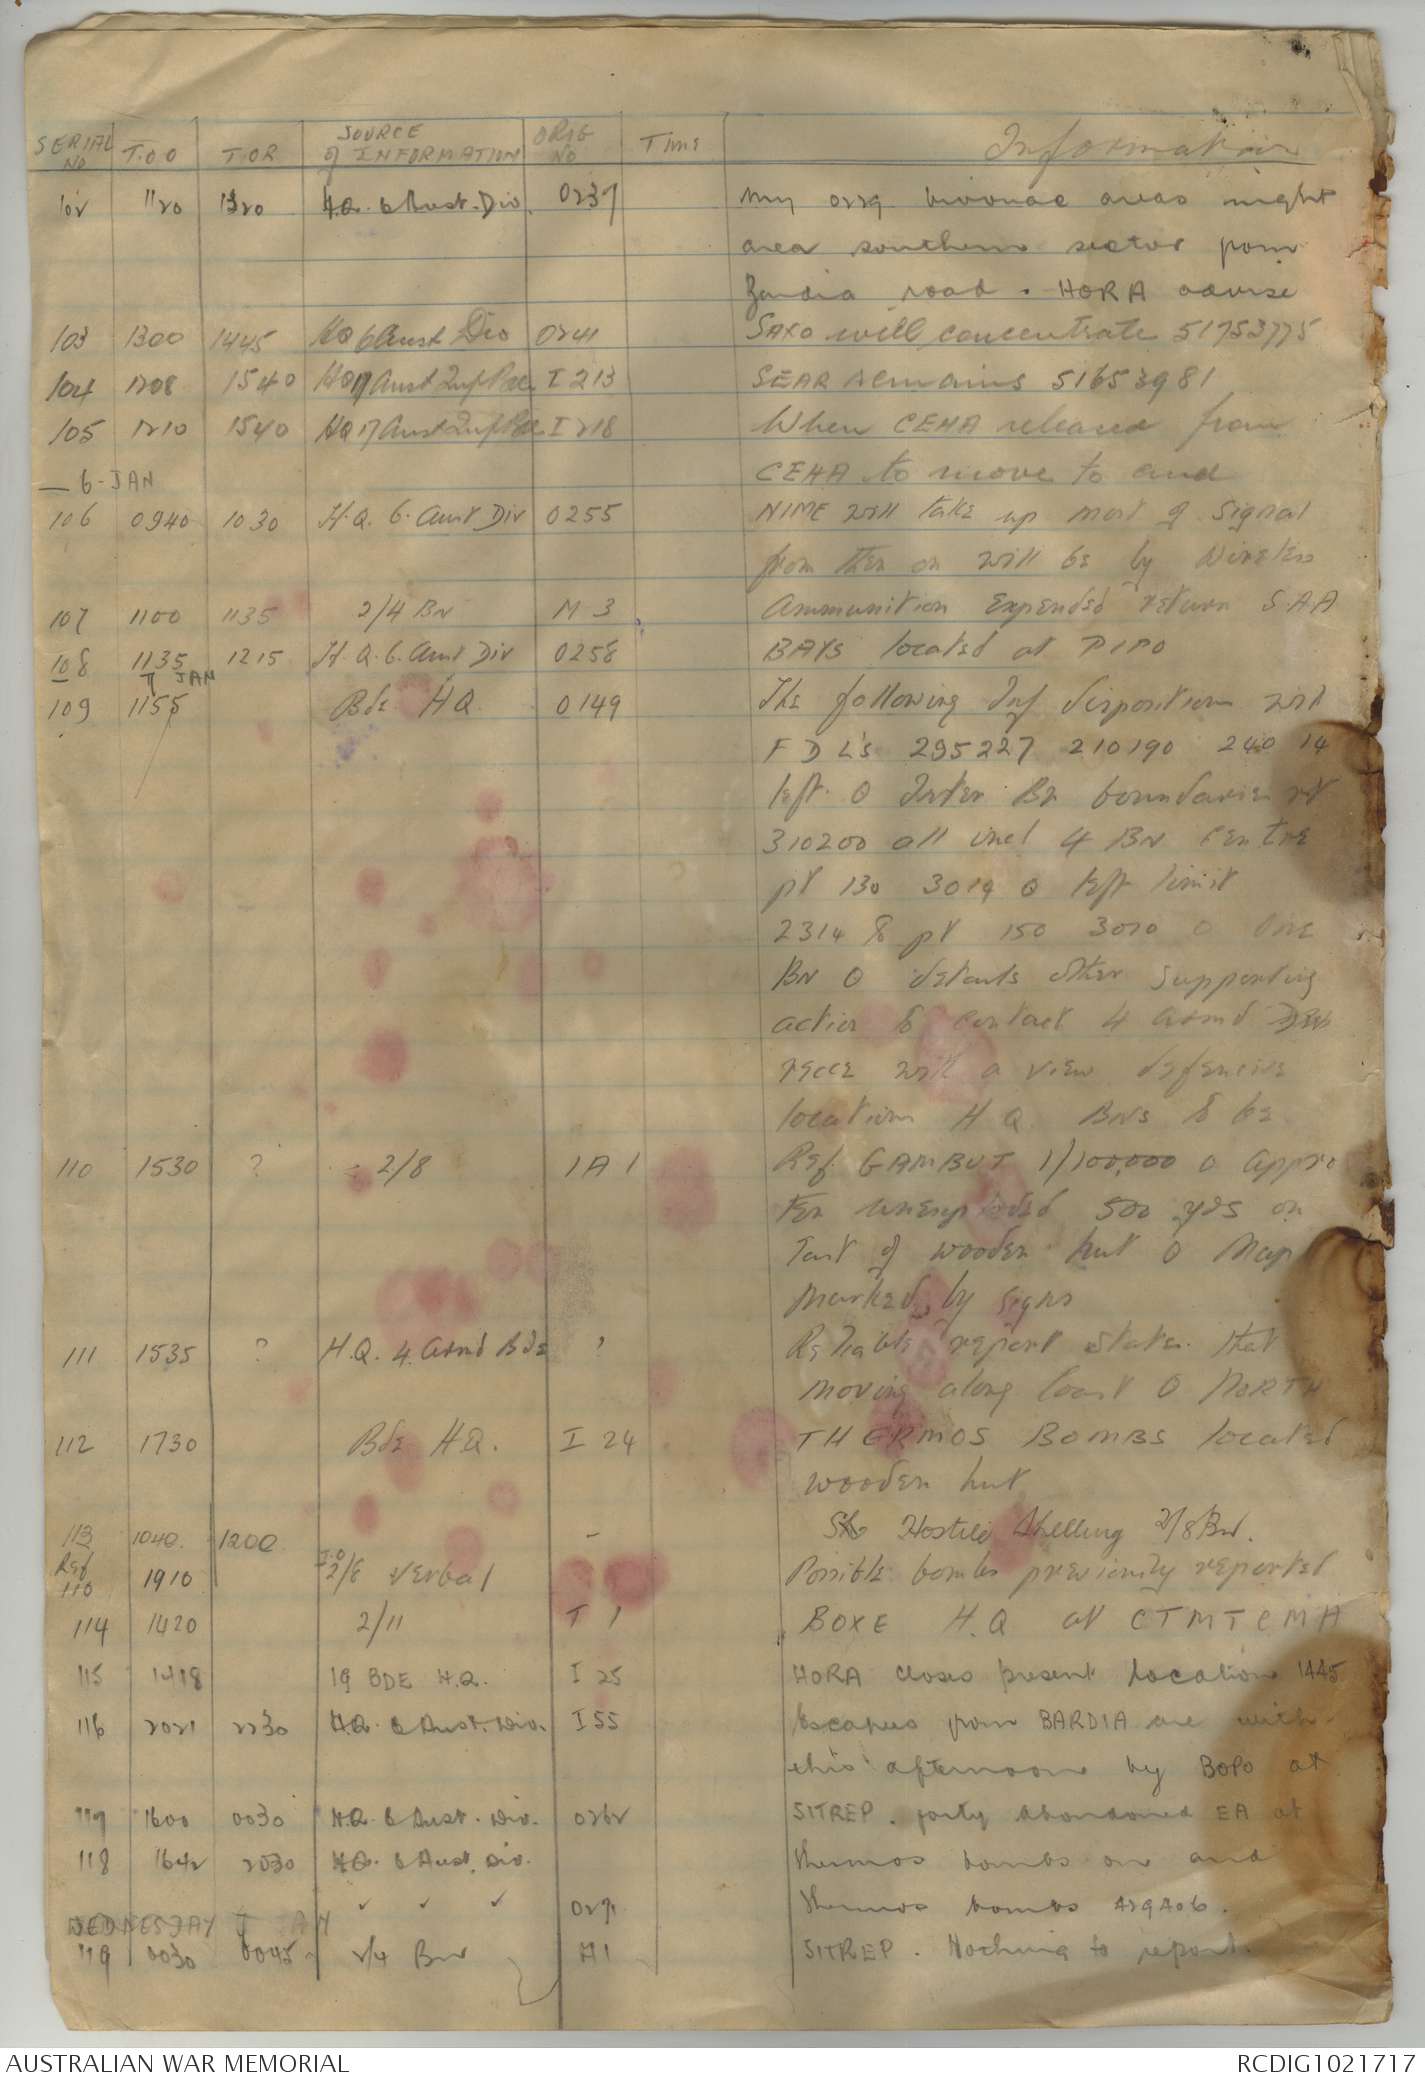 SERIAL No T.O.O T.O.R SOURCE of INFORMATION ORIG No Time Information
102 1120 1320 H.Q. 6 Aust. Div. 0237 My 0229 bivouac areas night
area southern sector from
Bardia road. HORA advise
103 1300 1445 HQ 6 Aust Div 0241 SAXO will concentrate 51753775
104 1208 1540 HQ 17 Aust Inf Bde I 213 SEAR remains 51653981
105 1210 1540 HQ 17 Aust Inf Bde I 218 When CEHA released from
CEHA to move to and
— 6-JAN
106 0940 1030 H.Q. 6. Aust Div 0255 NIME will take up most of signal
from then on will be by Wireless
107 1100 1135 2/4 BN M 3 Ammunition Expended return S.A.A
108 1135 1215 H.Q. 6. Aust Div 0258 BAYS located at PIPO
7 JAN
109 1155 Bde HQ. 0149 The following Inf dispositions with
F D L's 295227 210190 240 14
left. O Inter Bn boundaries pt
310200 all incl 4 BN Centre
pt 130 3019 O left limit
2314 to pt 150 3020 O One
BN O details other supporting
action to contact 4 armd
recce with a view defensive
locations H Q BNs to be
110 1530 ? 2/8 1A1 Ref. GAMBUT 1/100,000 O appro
ten unexploded 500 yds on
of wooden hut O Map
marked by signs
111 1535 ? H.Q. 4. armd Bde ? Reliable report states that
moving along coast O NORTH
112 1730 Bde HQ. I 24 THERMOS BOMBS located
wooden hut
113 1040. 1200. - Hostile Shelling 2/8 Bn.
Ref 110 1910 I.O 2/8 verbal Possible bombs previously reported
114 1420 2/11 I 1 BOXE H.Q at CTMTCMA
115 1418 19 BDE H.Q. I 25 HORA closes present location 1445
116 2021 2230 H.Q. 6 Aust. Div. I 55 Escapees from BARDIA are with
this afternoon by BOPO at
117 1600 0030 H.Q. 6 Aust. Div. 0262 SITREP. forty abandoned EA at
118 1642 2030 H.Q. 6 Aust. Div. thermos bombs on and
✓ ✓ ✓ 027. thermos bombs 429406.
WEDNESDAY JAN
119 0030 0045 2/4 Bn A1 SITREP. Nothing to report.
AUSTRALIAN WAR MEMORIAL RCDIG1021717